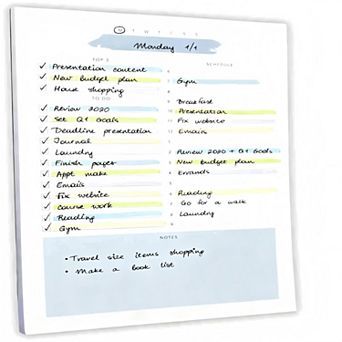 Monday 1/1
TOP 3
Presentation content
New budget plan
House shopping
TO DO
Review 2020
Set Q1 Goals
Deadline presentation
Journal
Laundry
Finish paper
Appt make
Emails
Fix website
Course work
Reading
Gym
SCHEDULE
Gym
Breakfast
Presentation
Fix website
Emails
Review 2020 + Q1 Goals
New budget plan
Errands
Reading
Go for a walk
Laundry
NOTES
• Travel size items shopping
• Make a book list